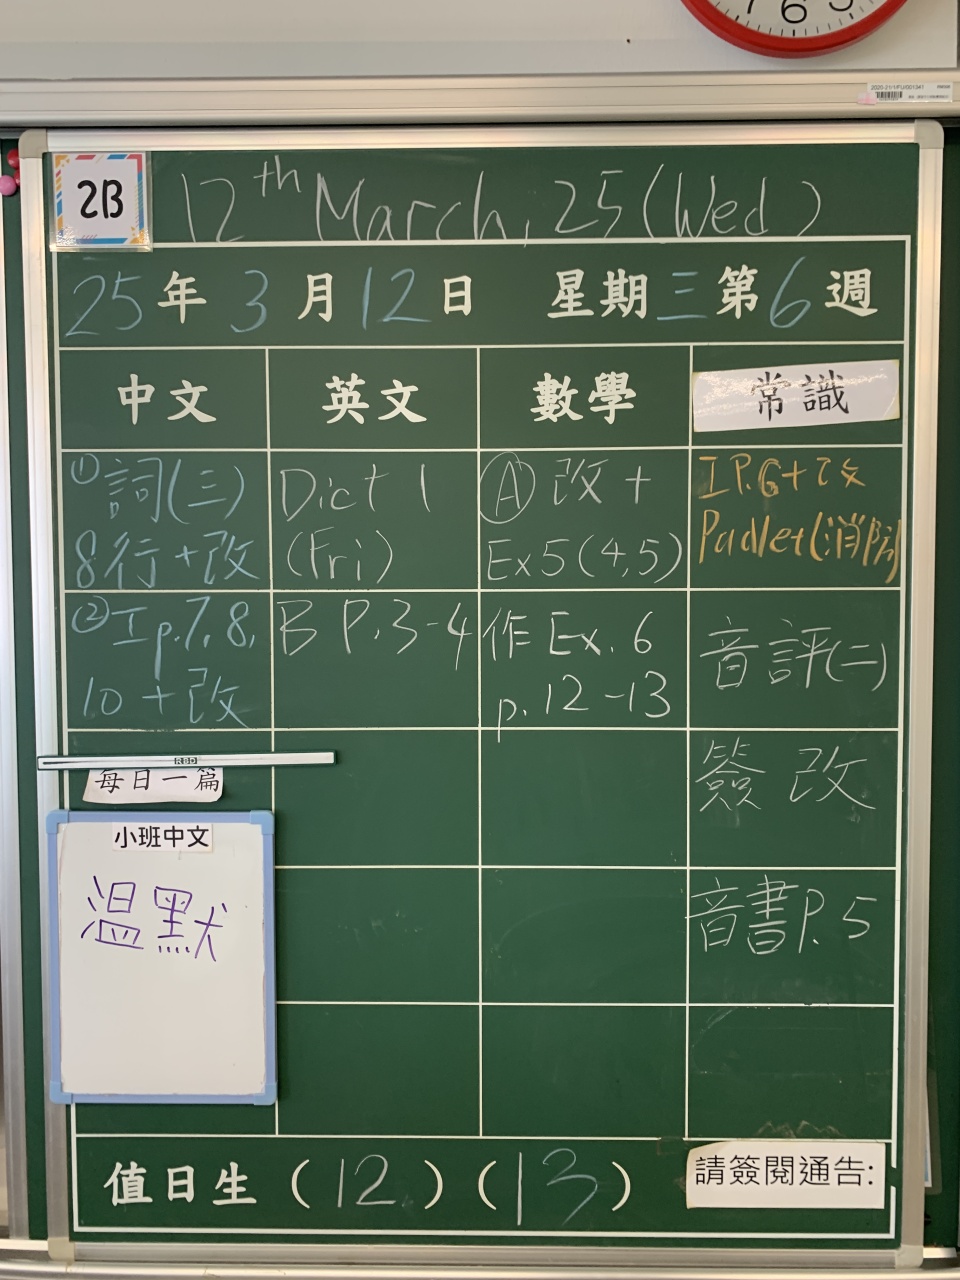 7 6 5
2B
12th March, 25 (Wed)
25年 3月 12日 星期三 第6週
中文 英文 數學 常識
① 詞(三)
8行+改
Dict 1
(Fri)
Ⓐ 改+
Ex5(4,5)
I P.6+改
Padlet(消防)
② I p.7, 8,
10+改
B P.3-4
作 Ex. 6
p. 12-13
音評(二)
RBD
每日一篇
簽 改
小班中文
溫默
音書P. 5
值日生 (12) (13)
請簽閱通告: